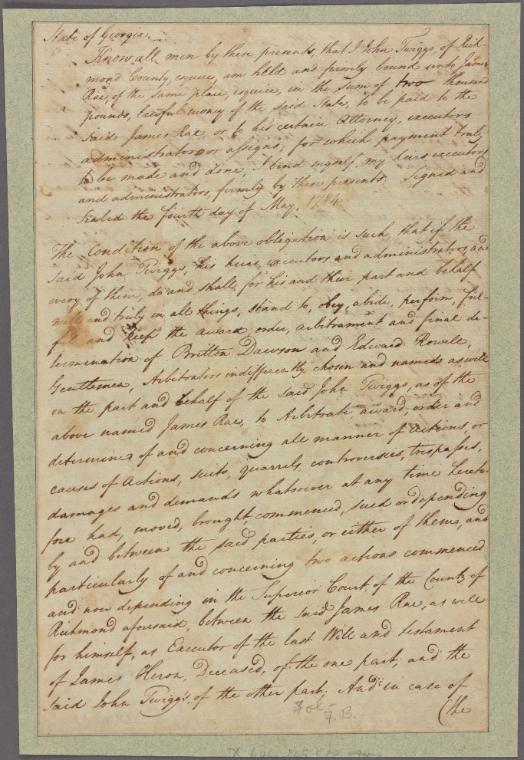 State of Georgia.
Know all men by these presents, that I John Twiggs, of Rich-
mond County, esquire, am held and firmly bound unto James
Rae, of the same place, esquire, in the sum of two thousand
pounds, lawful money of the said State, to be paid to the
said James Rae, or to his certain Attorney, executors
administrators or assigns; for which payment truly
to be made and done, I bind myself, my heirs executors
and administrators, firmly by these presents. Signed and
sealed the fourth day of May, 1784.
The Condition of the above obligation is such, that if the
said John Twiggs, his heirs executors and administrators, and
every of them, do and shall, for his and their part and behalf
well and truly in all things, stand to, obey, abide, perform, ful-
fil and keep the award order, arbitrament and final de-
termination of Britten Dawson and Edward Rowell,
Gentlemen, Arbitrators indifferently chosen and named as well
on the part and behalf of the said John Twiggs, as of the
above named James Rae, to Arbitrate award, order and
determine, of and concerning all manner of actions, or
causes of Actions, suits, quarrels, controversies, trespasses,
damages and demands whatsoever at any time hereto-
fore had, moved, brought, commenced, sued or depending
by and between the said parties, or either of them, and
particularly of and concerning two actions commenced
and now depending in the Superior Court, of the County of
Richmond aforesaid, between the said James Rae, as well
for himself, as Executor of the last Will and testament
of James Heron, Deceased, of the one part, and the
said John Twiggs, of the other part; And in case of
(the
Fol.
F.B.